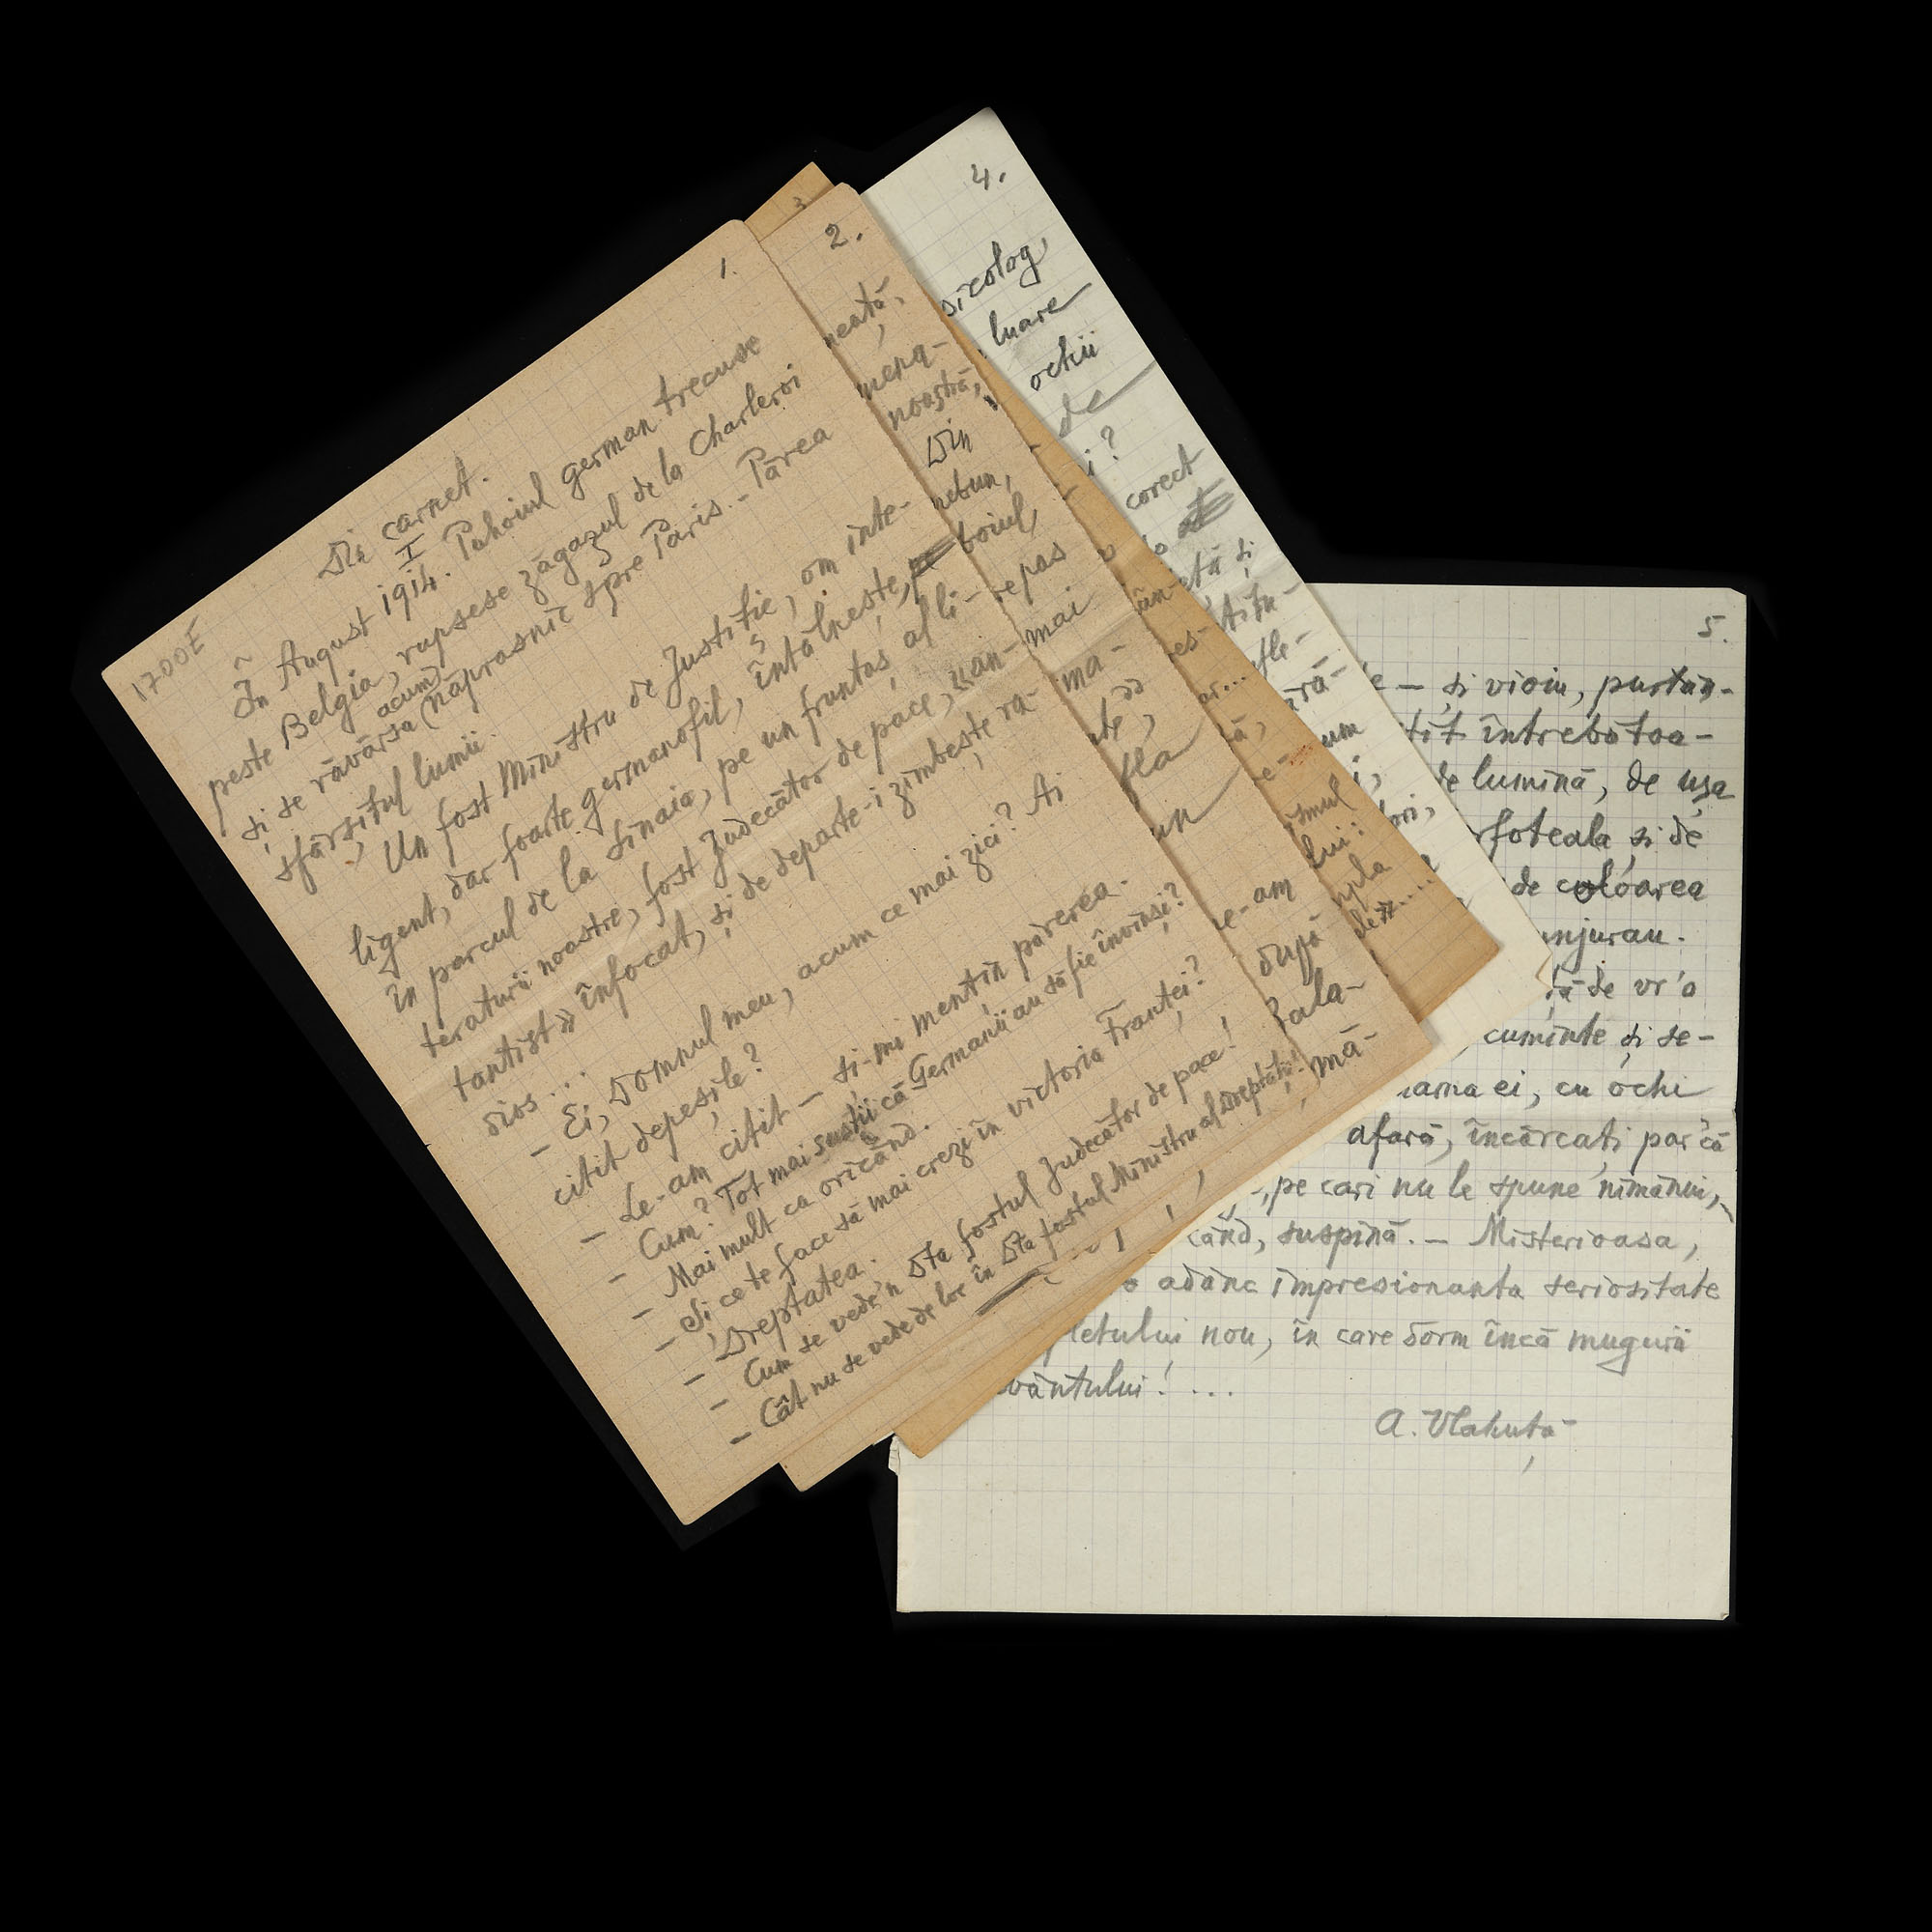 1.
1700E
Din carnet.
I
În August 1914. Puhoiul german trecuse
peste Belgia, rupsese zăgazul de la Charleroi
și se răvărsa (acum) năprasnic spre Paris. - Părea
sfârșitul lumii.
Un fost Ministru de Justiție, om inte-
ligent, dar foarte germanofil, întâlnește,
în parcul de la Sinaia, pe un fruntaș al li-
teraturii noastre, fost Judecător de pace, «an-
tantist» înfocat, și de departe-i zîmbește ra-
dios...
- Ei, Domnul meu, acum ce mai zici? Ai
citit depeșile?
- Le-am citit - și-mi mențin părerea.
- Cum? Tot mai susții că Germanii au să fie învinși?
- Mai mult ca oricând.
- Și ce te face să mai crezi în victoria Franței?
- Dreptatea.
- Cum se vede'n Dta fostul Judecător de pace!
- Cât nu se vede de loc în Dta fostul Ministru al Dreptății!
2.
noastră,
Din
nebun,
boiul,
repas
mai
ma-
fla
un
e-am
după
mă-
3
4.
luare
ochii
de
corect
și
um
5.
- și vioiu, purtân-
întrebătoa-
de lumină, de ușa
și de
de coloarea
de vr'o
cuminte și se-
ei, cu ochi
afară, încărcați par'că
pe cari nu le spune nimănui,
când, suspină. - Misterioasa,
adânc impresionanta seriozitate
nou, în care dorm încă mugurii
A. Vlahuță